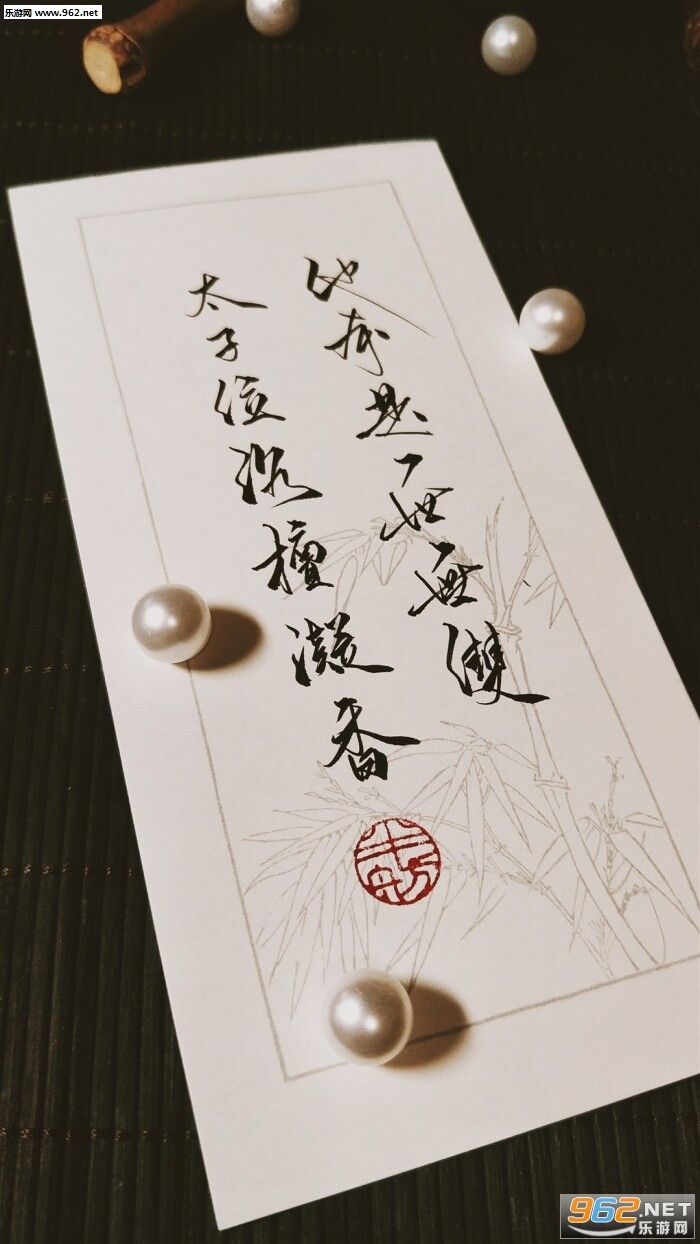 乐游网 www.962.net
他掷是一世无双
太子位沉檀凝香
962.NET
乐游网